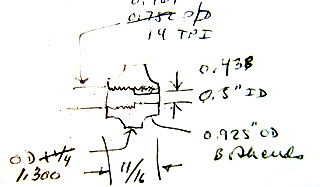 0.752 O/D
14 TPI
0.438
0.5" ID
0.925" OD
Both ends
OD 1 1/4
1.300
11/16